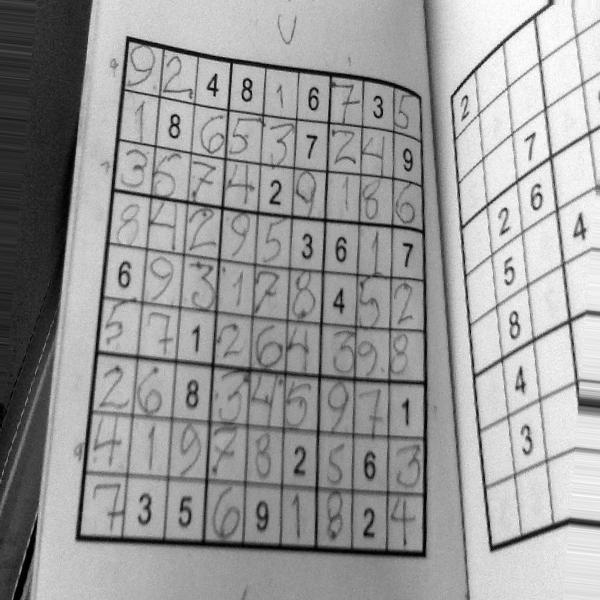 9 2 4 8 1 6 7 3 5
1 8 6 5 3 7 2 4 9
3 5 7 4 2 9 1 8 6
8 4 2 9 5 3 6 1 7
6 9 3 1 7 8 4 5 2
5 7 1 2 6 4 3 9 8
2 6 8 3 4 5 9 7 1
4 1 9 7 8 2 5 6 3
7 3 5 6 9 1 8 2 4
2
7
6
2 4
5
8
4
3